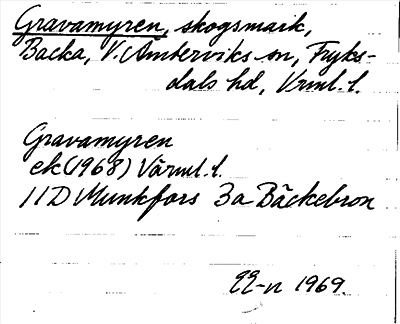 Gravamyren, skogsmark,
Backa, V. Ämterviks sn, Fryks-
dals hd, Vrml. l.
Gravamyren
ek (1968) Värml. l.
11D Munkfors 3a Bäckebron
1969